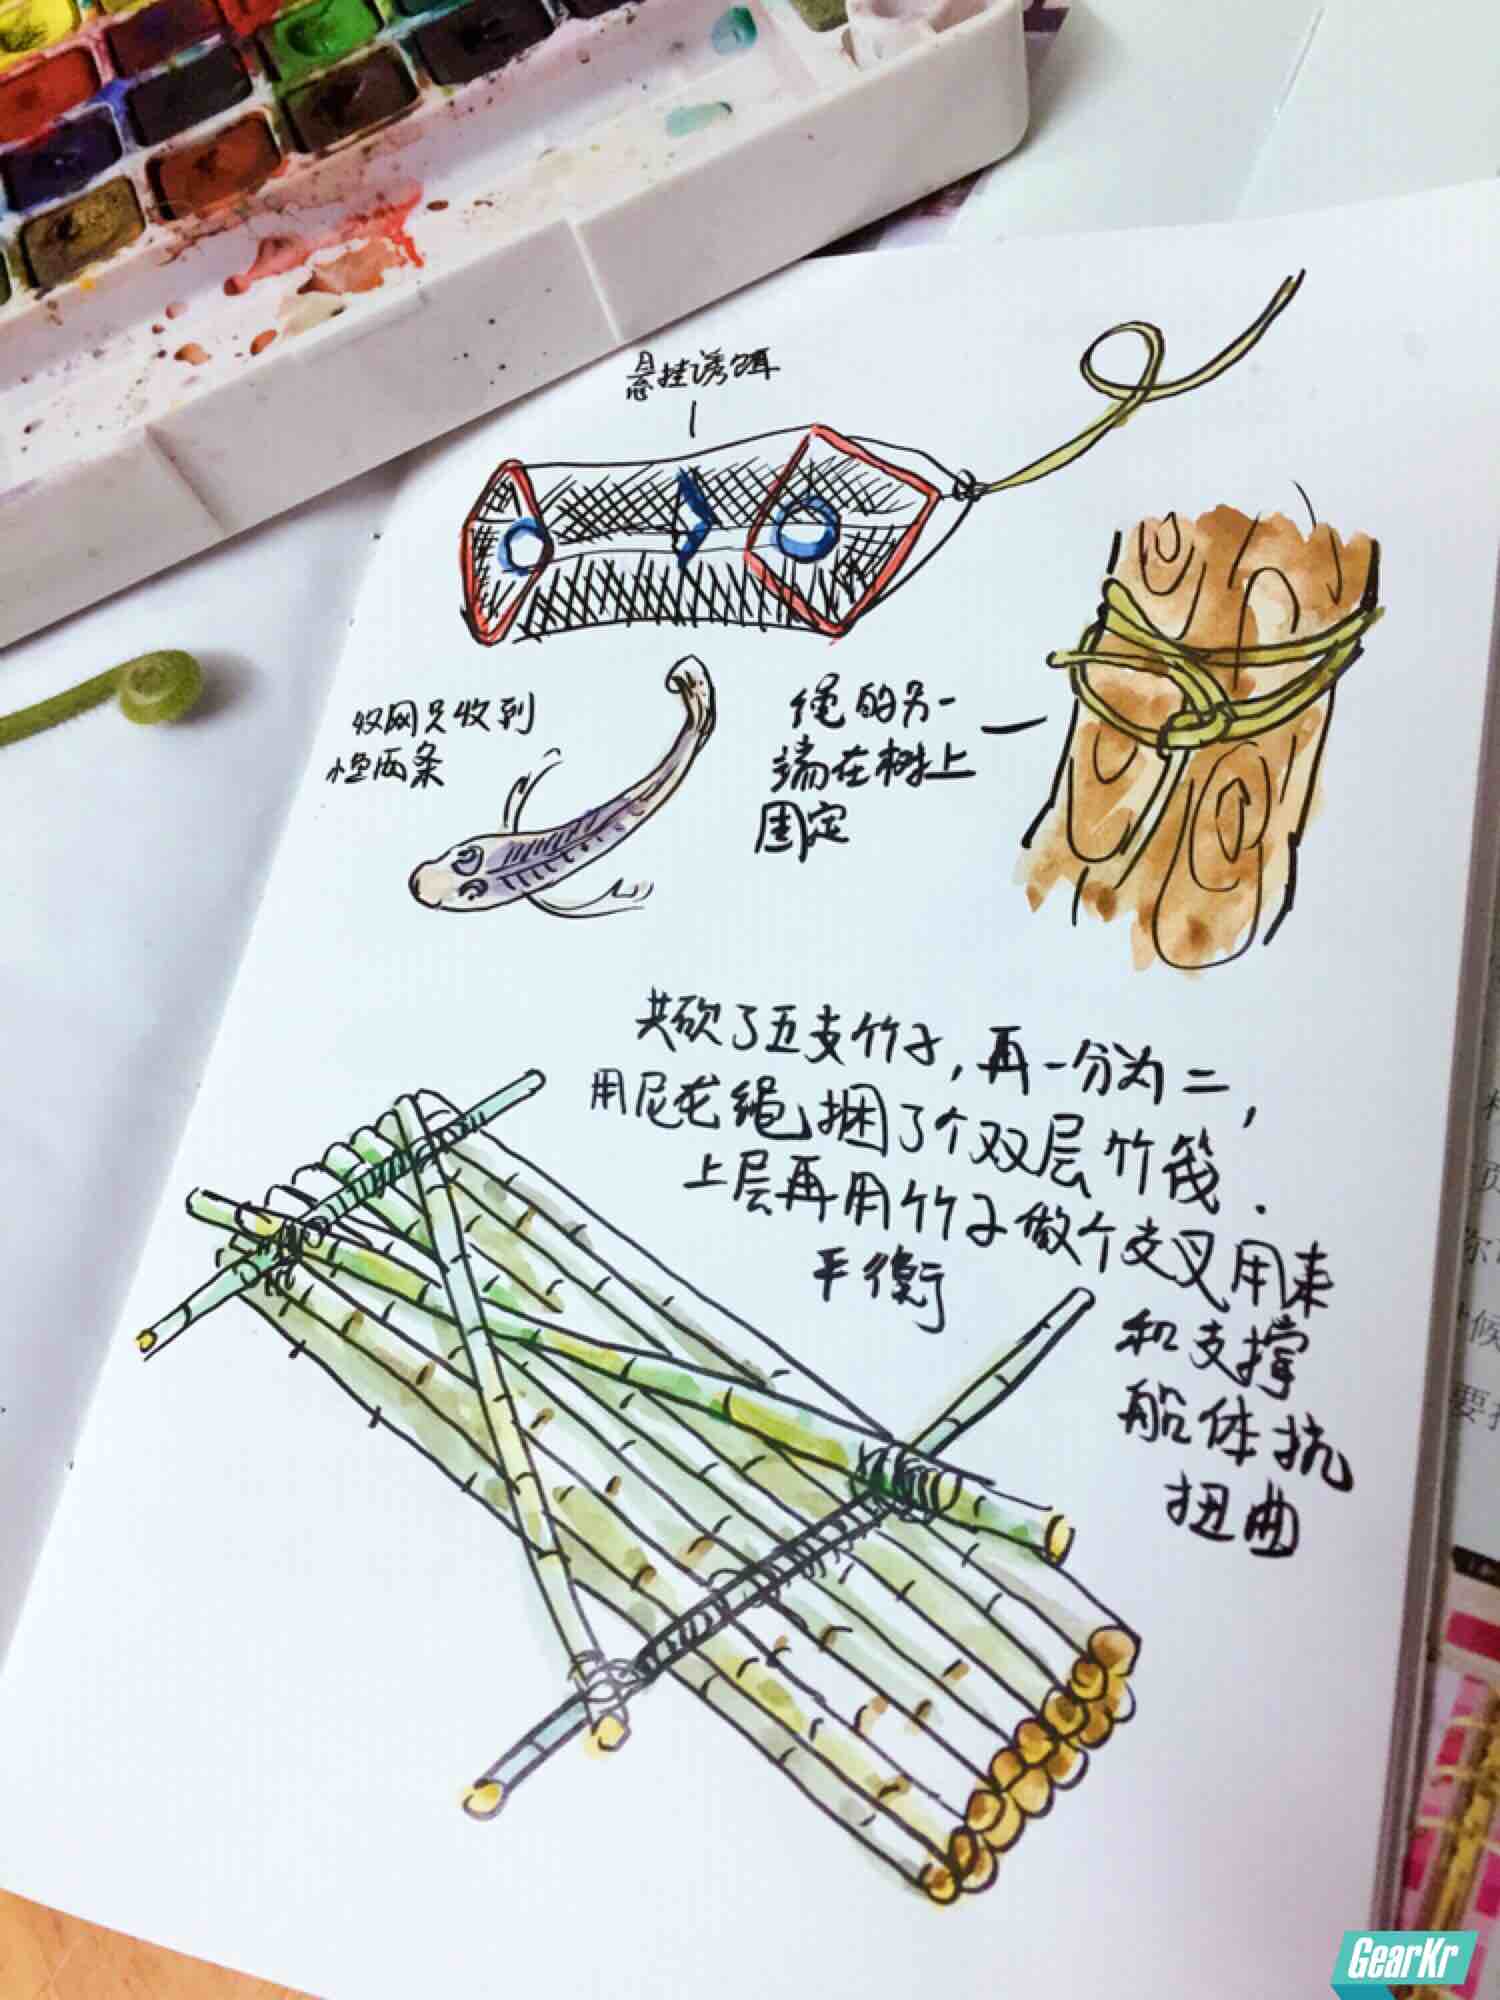 悬挂诱饵
收网只收到
小鱼两条
绳的另一
端在树上
固定
共砍了五支竹子，再一分为二，
用尼龙绳捆了个双层竹筏.
上层再用竹子做个交叉用来
平衡
和支撑
船体抗
扭曲
候
要
GearKr